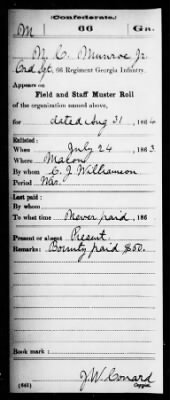 (Confederate.)
M 66 Ga.
M. C. Munroe Jr.
Ord Sgt, 66 Regiment Georgia Infantry.
Appears on
Field and Staff Muster Roll
of the organization named above,
for dated Aug 31, 1864
Enlisted:
When July 24, 1863
Where Macon
By whom C. J. Williamson
Period War.
Last paid:
By whom
To what time Never paid, 186
Present or absent Present.
Remarks: Bounty paid $50.
Book mark:
J. W. Conard
(641) Copyist.